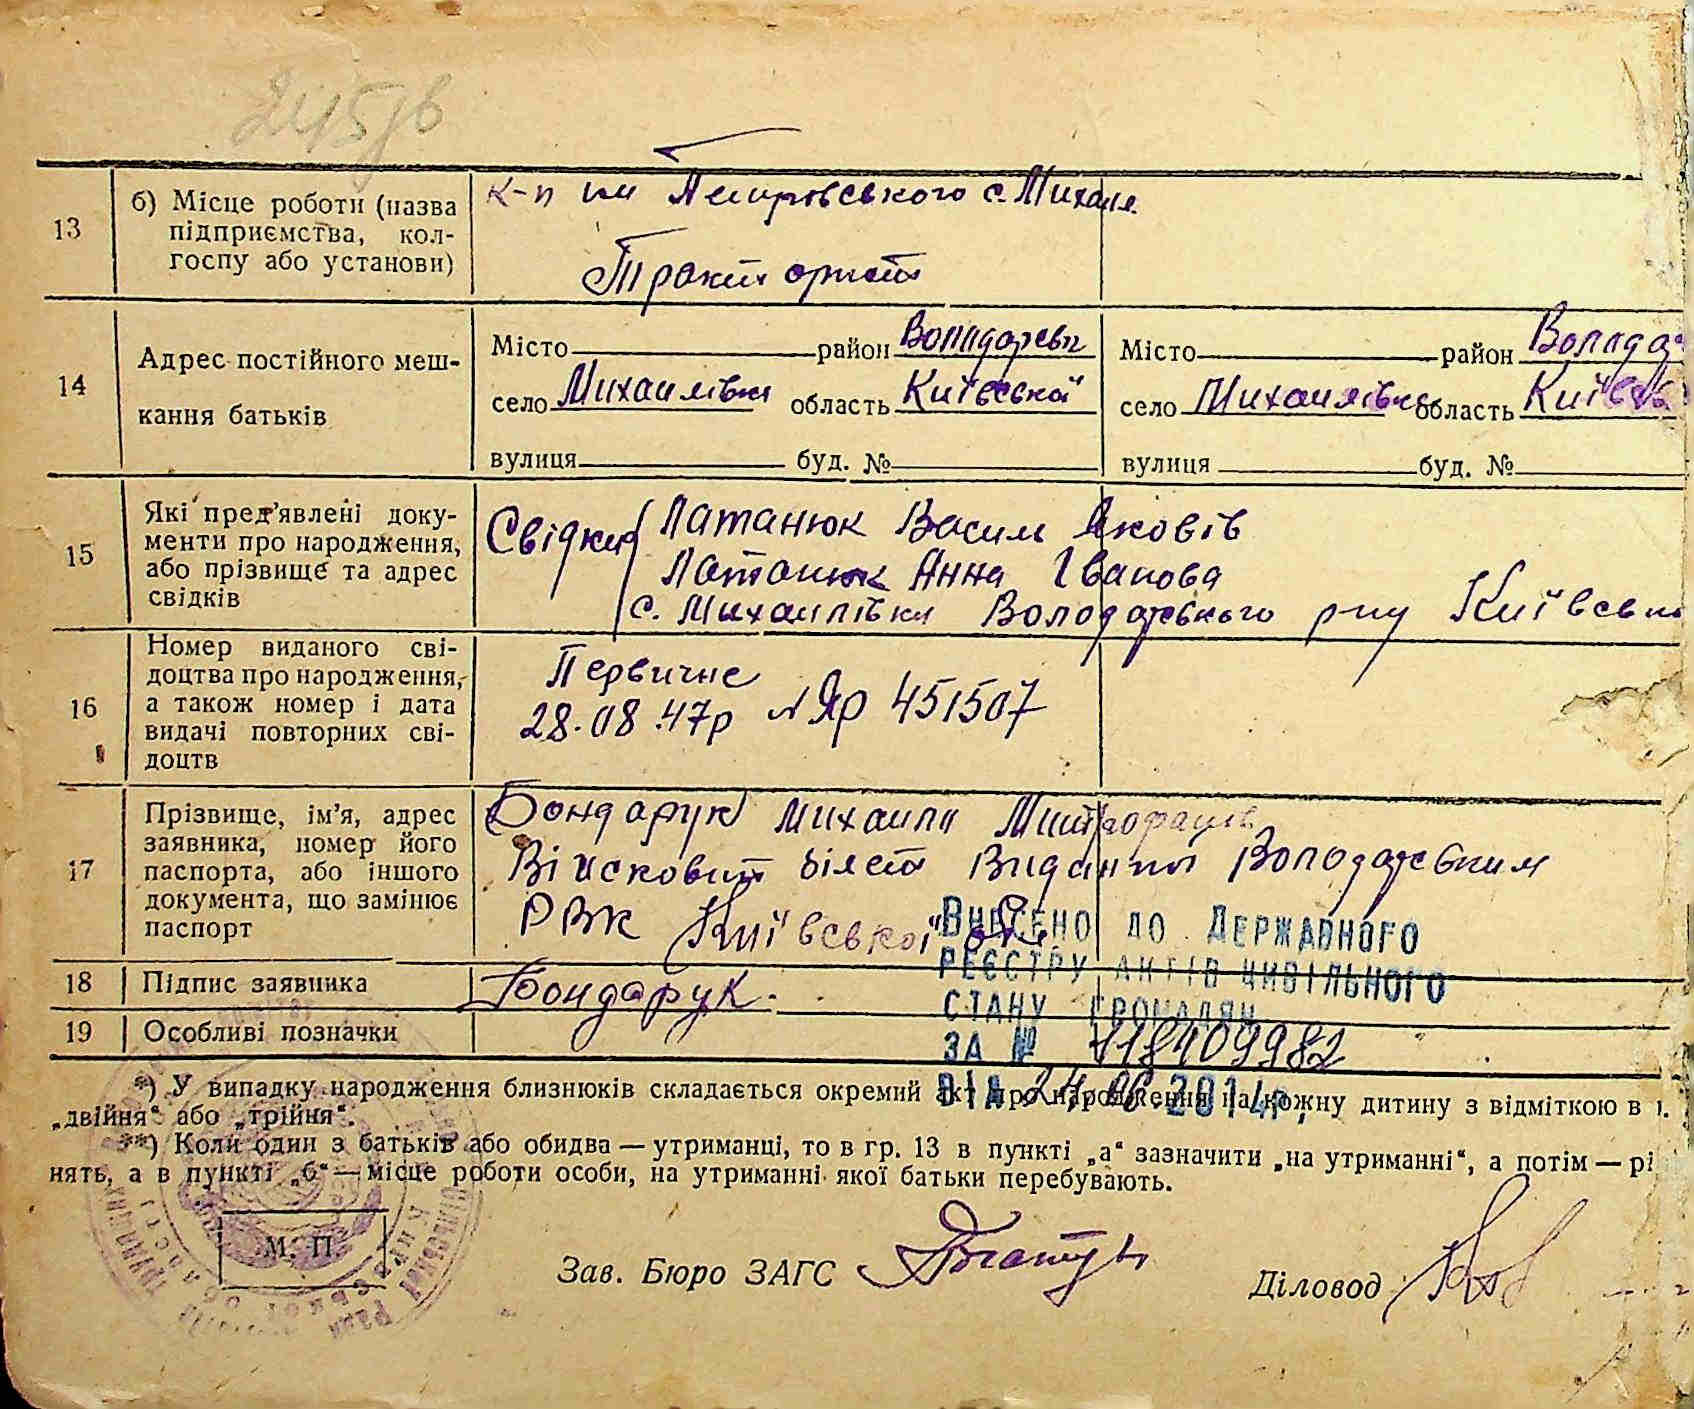 13
б) Місце роботи (назва
підприємства, кол-
госпу або установи)
к-п ім Петровського с. Михайл.
Тракторист
14
Адрес постійного меш-
кання батьків
Місто район Володарськ
село Михайлівка область Київської
вулиця буд. №
Місто район Володар
село Михайлівка область Київсь
вулиця буд. №
15
Які пред'явлені доку-
менти про народження,
або прізвище та адрес
свідків
Свідки Латанюк Василь Яковів
Латанюк Анна Іванова
с. Михайлівка Володарського р-ну Київськ
16
Номер виданого сві-
доцтва про народження,
а також номер і дата
видачі повторних сві-
доцтв
Первичне
28.08.47р № ЯР 451507
17
Прізвище, ім'я, адрес
заявника, номер його
паспорта, або іншого
документа, що замінює
паспорт
Бондарук Михайло
Військовий білет Виданий Володарським
РВК Київської обл.
18 Підпис заявника
Бондарук
19 Особливі позначки
Внесено до Державного
реєстру актів цивільного
стану громадян
за №
від 24.06.2014р.
*) У випадку народження близнюків складається окремий акт про народження на кожну дитину з відміткою в г.
„двійня“ або „трійня“.
**) Коли один з батьків або обидва — утриманці, то в гр. 13 в пункті „а“ зазначити „на утриманні“, а потім — рі
нять, а в пункті „б“ — місце роботи особи, на утриманні якої батьки перебувають.
М. П.
Зав. Бюро ЗАГС
Діловод